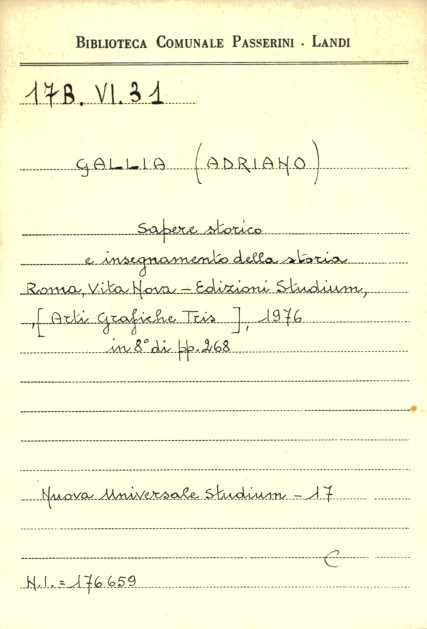 BIBLIOTECA COMUNALE PASSERINI - LANDI
17B. VI. 31
GALLIA (ADRIANO)
Sapere storico
e insegnamento della storia
Roma, Vita Nova - Edizioni Studium,
,[Arti Grafiche Tris], 1976
in 8° di pp. 268
Nuova Universale Studium - 17
C
N.I. = 176659